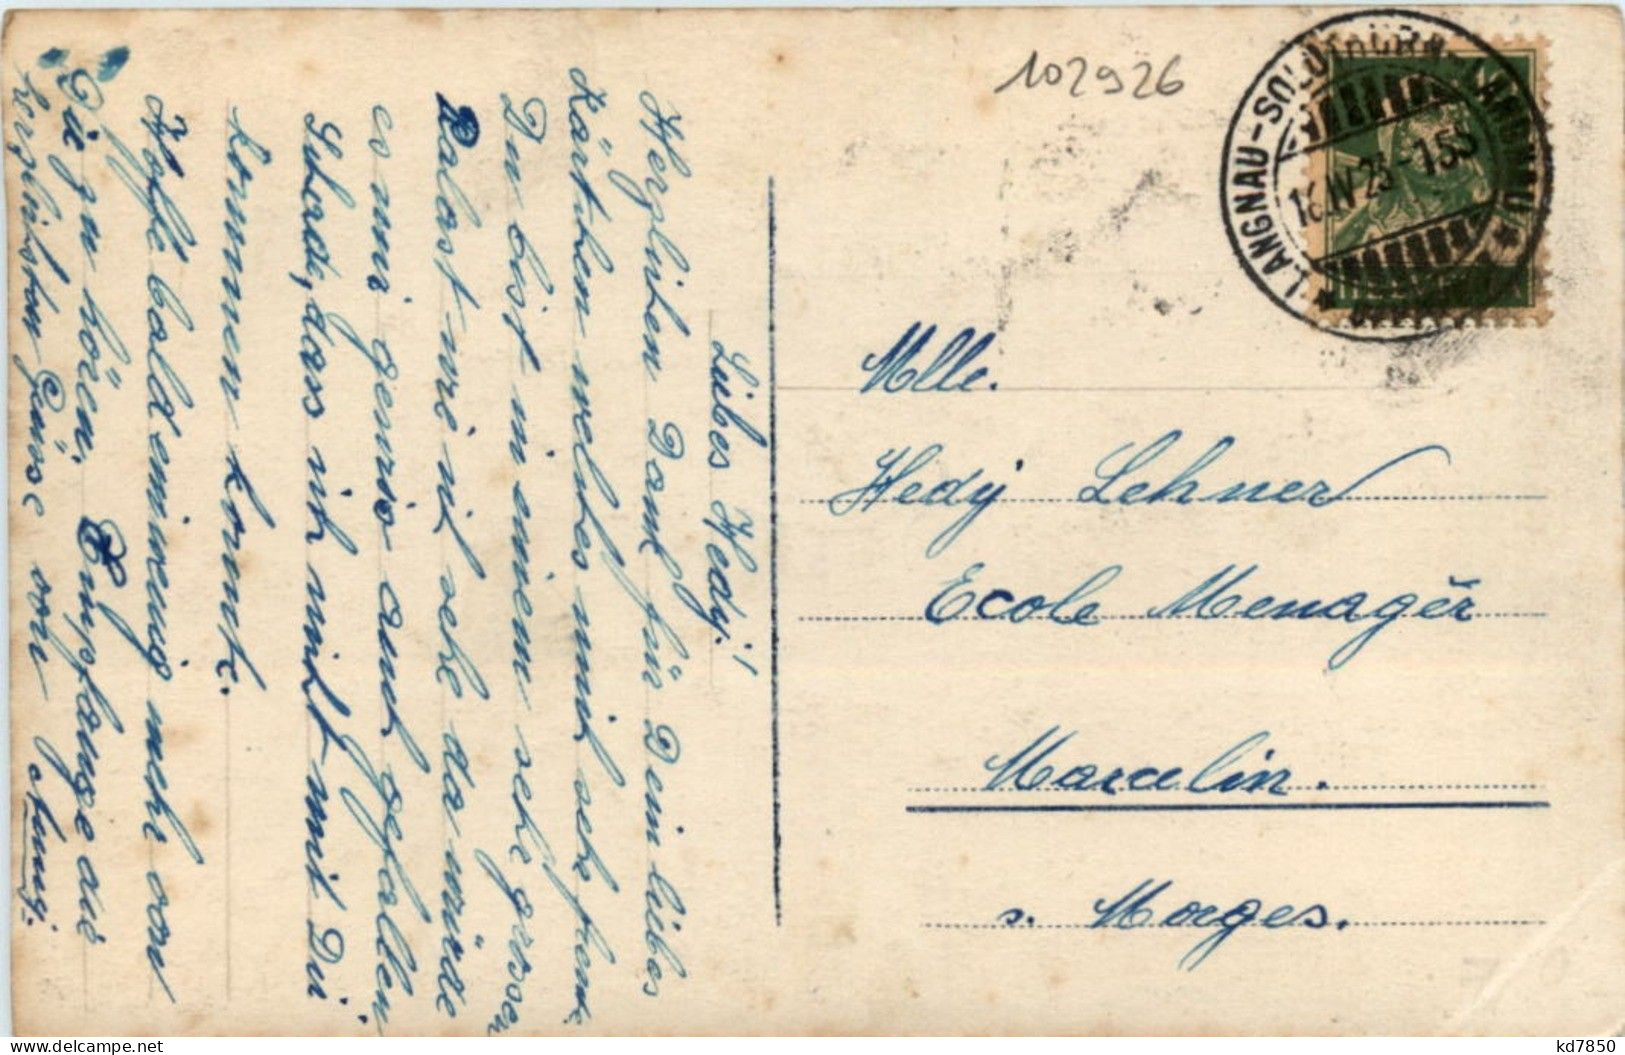 Liebes Hedy!
Herzlichen Dank für Dein liebes
Kärtchen welches mich sehr freute
Du bist in einem sehr grossen
Palast wie ich sehe da würde
es mir gewiss auch gefallen
Schade, dass ich nicht mit Dir
kommen konnte.
Hoffe bald einwenig mehr von
Dir zu hören. Empfange die
herzlichsten Grüsse von
102926
*LANGNAU-SOLOTHURN-LANGNAU*
16.IV 23 - 155
Mlle.
Hedy Lehner
Ecole Menagèr
Marcelin.
s. Morges.
delcampe.net
kd7850